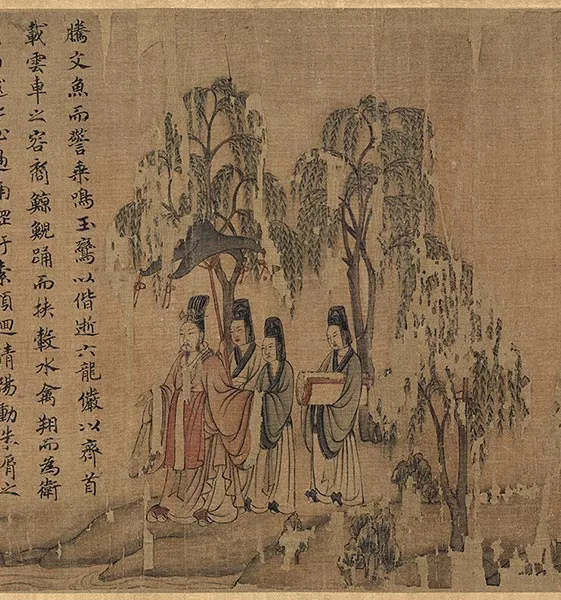 騰文魚而警乘鳴玉鸞以偕逝六龍儼以齊首
載雲車之容裔鯨鯢踊而挾轂水禽翔而為衛
素領迴清陽動朱脣之